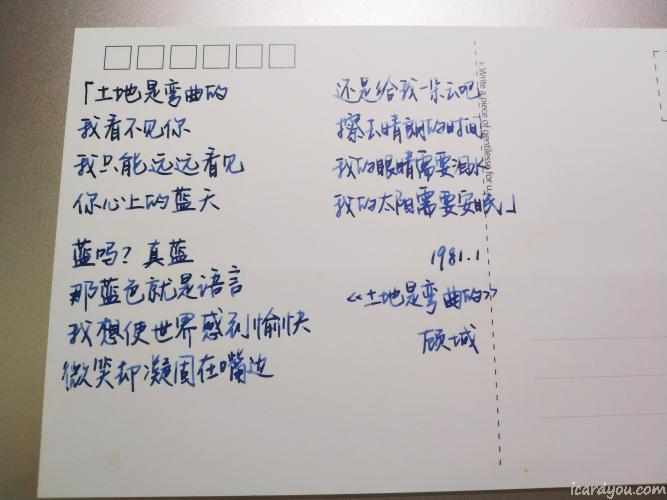 「土地是弯曲的
我看不见你
我只能远远看见
你心上的蓝天
蓝吗？真蓝
那蓝色就是语言
我想使世界感到愉快
微笑却凝固在嘴边
还是给我一朵云吧
擦去晴朗的时间
我的眼睛需要泪水
我的太阳需要安眠」
1981.1
《土地是弯曲的》
顾城
+ Write a piece of gentlesse for u
icardyou.com